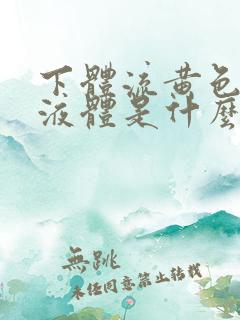 下體流黄色
液體是什麽
無跳
未经同意禁止转载